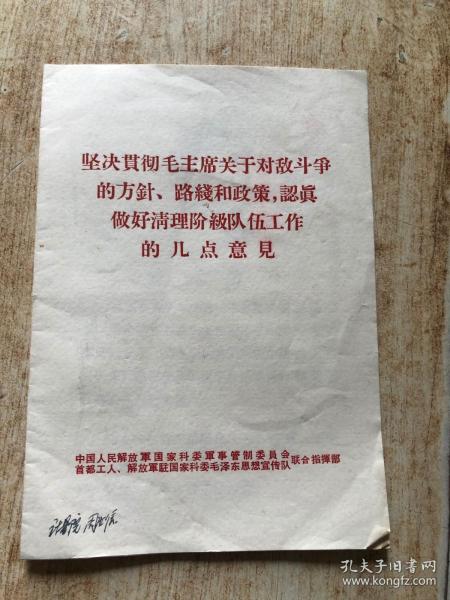 坚决貫彻毛主席关于对敌斗爭
的方針、路綫和政策,認眞
做好淸理阶級队伍工作
的几点意見
中国人民解放軍国家科委軍事管制委員会
首都工人、解放軍駐国家科委毛泽东思想宣传队
联合指揮部
孔夫子旧书网
www.kongfz.com